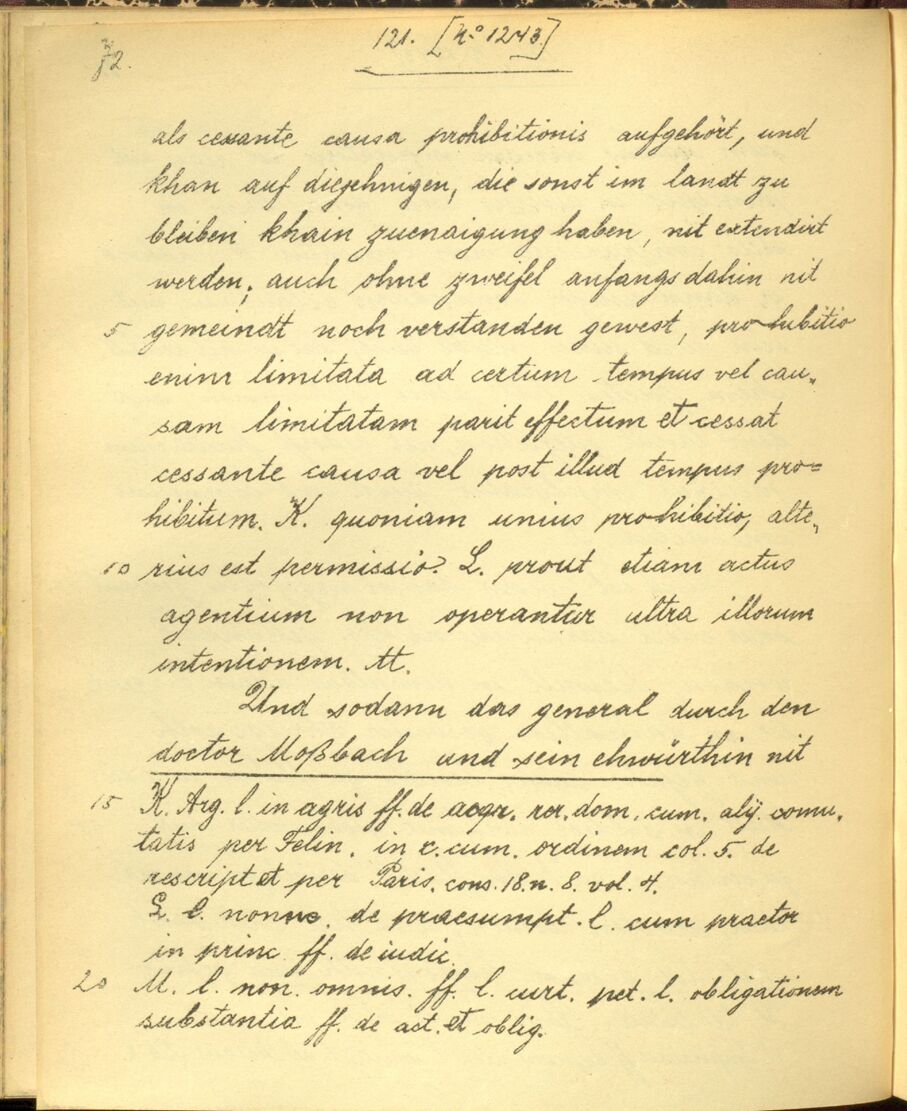 121. [No 1243.]
als cessante causa prohibitionis aufgehört, und
khan auf diejehnigen, die sonst im landt zu
bleiben khain zuenaigung haben, nit extendirt
werden, auch ohne zweifel anfangs dahin nit
5 gemeindt noch verstanden gewest, prohibitio
enim limitata ad certum tempus vel cau„
sam limitatam parit effectum et cessat
cessante causa vel post illud tempus pro=
hibitum. K. quoniam unius prohibitio, alte„
10 rius est permissio. L. prout etiam actus
agentium non operantur ultra illorum
intentionem. M.
Und sodann das general durch den
doctor Moßbach und sein ehwürthin nit
15 K. Arg. l. in agris ff. de acqr. rer. dom. cum. alij. comu„
tatis per Felin. in c. cum. ordinem col. 5. de
rescript et per Paris. cons. 18. n. 8. vol. 4.
L. c. nonne. de praesumpt. l. cum praetor
in princ. ff. de iudic.
20 M. l. non. omnis. ff. l. curt. pet. l. obligationem
substantia ff. de act. et oblig.